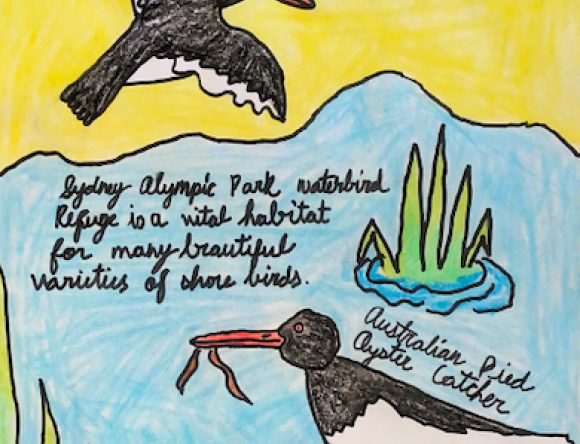 Sydney Olympic Park waterbird
Refuge is a vital habitat
for many beautiful
varieties of shore birds.
Australian Pied
Oyster Catcher